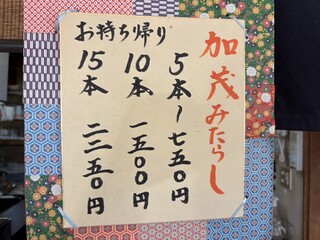 加茂みたらし
お持ち帰り
5本〜七五〇円
10本 一五〇〇円
15本 二二五〇円